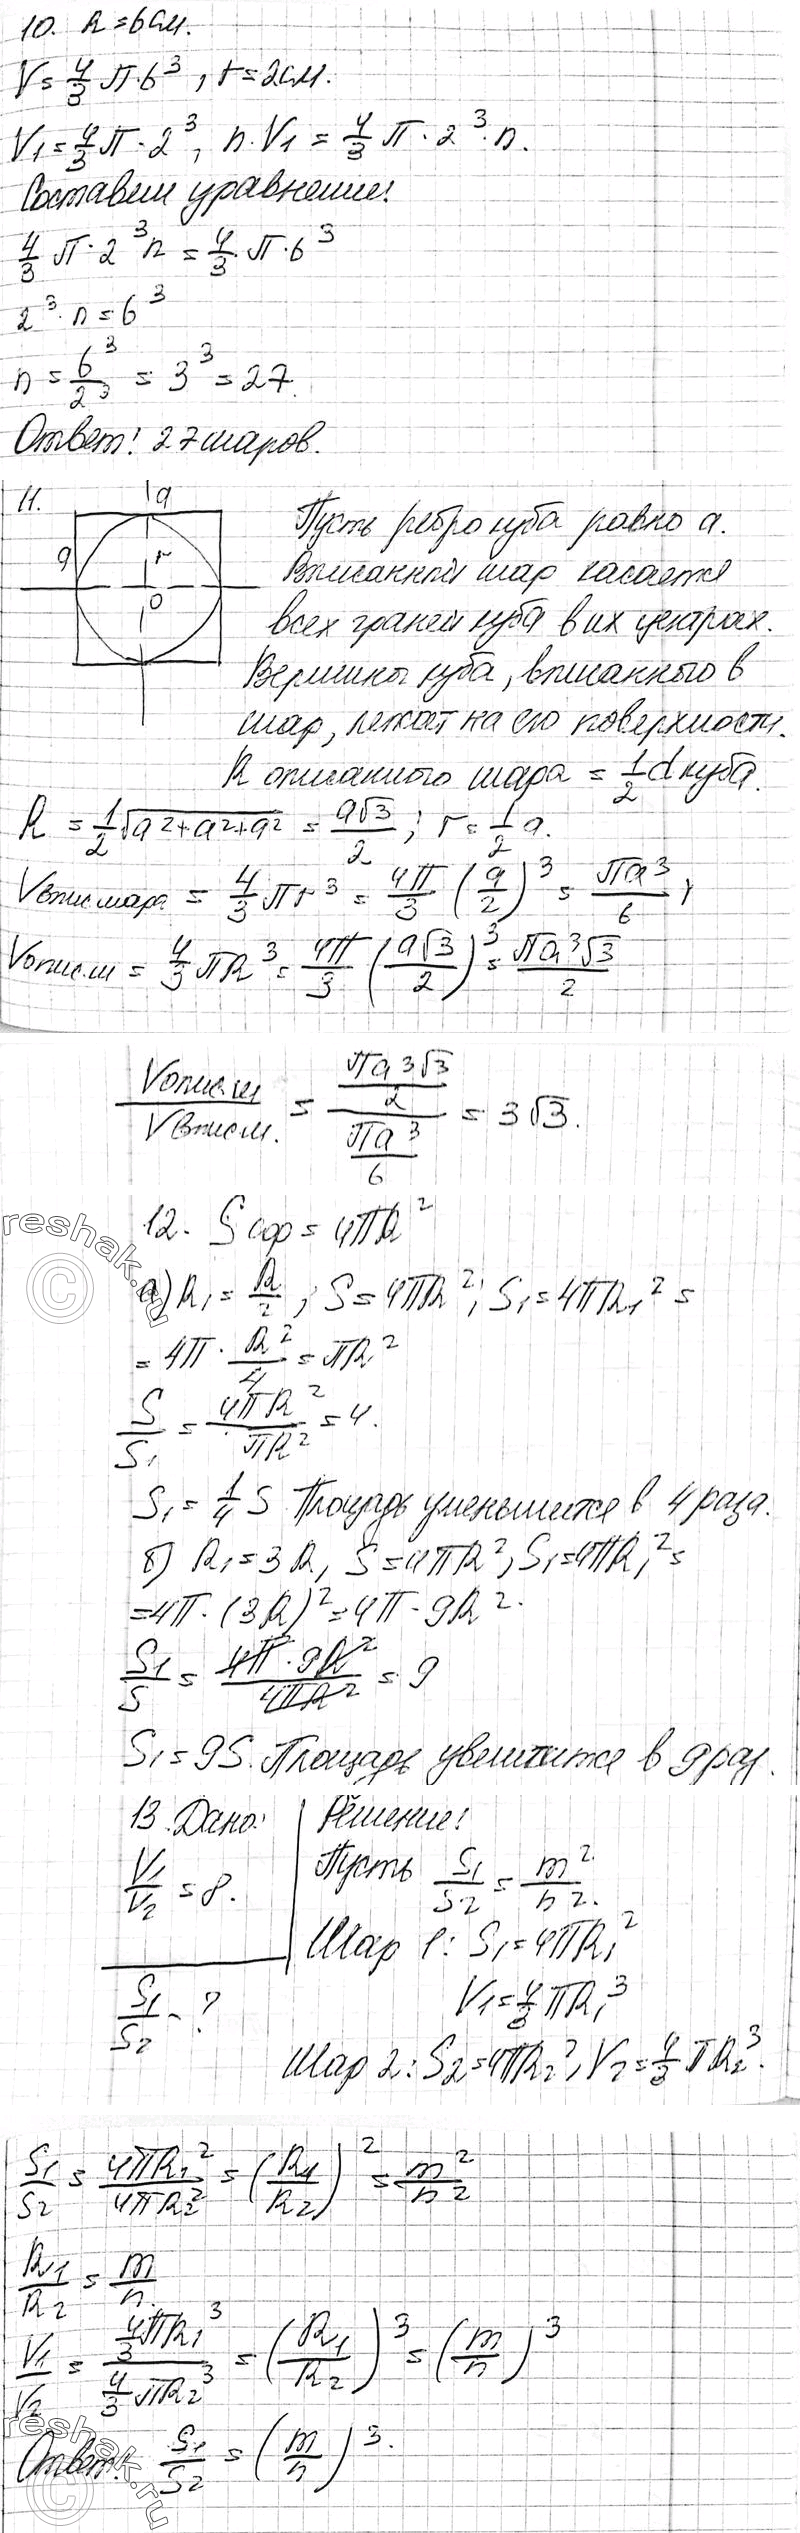 10. R = 6 см.
V = 4/3 π·6³, r = 2 см.
V₁ = 4/3 π·2³, n·V₁ = 4/3 π·2³·n.
Составим уравнение:
4/3 π·2³n = 4/3·π·6³
2³·n = 6³
n = 6³/2³ = 3³ = 27.
Ответ: 27 шаров.
11.
a
a
r
O
Пусть ребро куба равно a.
Вписанный шар касается
всех граней куба в их центрах.
Вершины куба, вписанного в
шар, лежат на его поверхности.
R описанного шара = 1/2 d куба.
R = 1/2 √(a²+a²+a²) = a√3/2; r = 1/2 a.
Vвпис шара = 4/3 πr³ = 4π/3 (a/2)³ = πa³/6;
Vопис.ш = 4/3 πR³ = 4π/3 (a√3/2)³ = πa³√3/2
Vопис.ш/Vвпис.ш. = (πa³√3/2)/(πa³/6) = 3√3.
12. Sсф = 4πR²
а) R₁ = R/2; S = 4πR²; S₁ = 4πR₁² =
= 4π·R²/4 = πR²
S/S₁ = 4πR²/πR² = 4.
S₁ = 1/4 S Площадь уменьшится в 4 раза.
б) R₁ = 3R, S = 4πR², S₁ = 4πR₁² =
= 4π·(3R)² = 4π·9R².
S₁/S = 4π·9R²/4πR² = 9
S₁ = 9S. Площадь увеличится в 9 раз.
13. Дано:
V₁/V₂ = 8.
S₁/S₂ - ?
Решение:
Пусть S₁/S₂ = m²/n².
Шар 1: S₁ = 4πR₁²
V₁ = 4/3 πR₁³
Шар 2: S₂ = 4πR₂², V₂ = 4/3 πR₂³.
S₁/S₂ = 4πR₁²/4πR₂² = (R₁/R₂)² = m²/n²
R₁/R₂ = m/n.
V₁/V₂ = (4/3 πR₁³)/(4/3 πR₂³) = (R₁/R₂)³ = (m/n)³
Ответ: S₁/S₂ = (m/n)³.
reshak.ru
©
reshak.ru
©